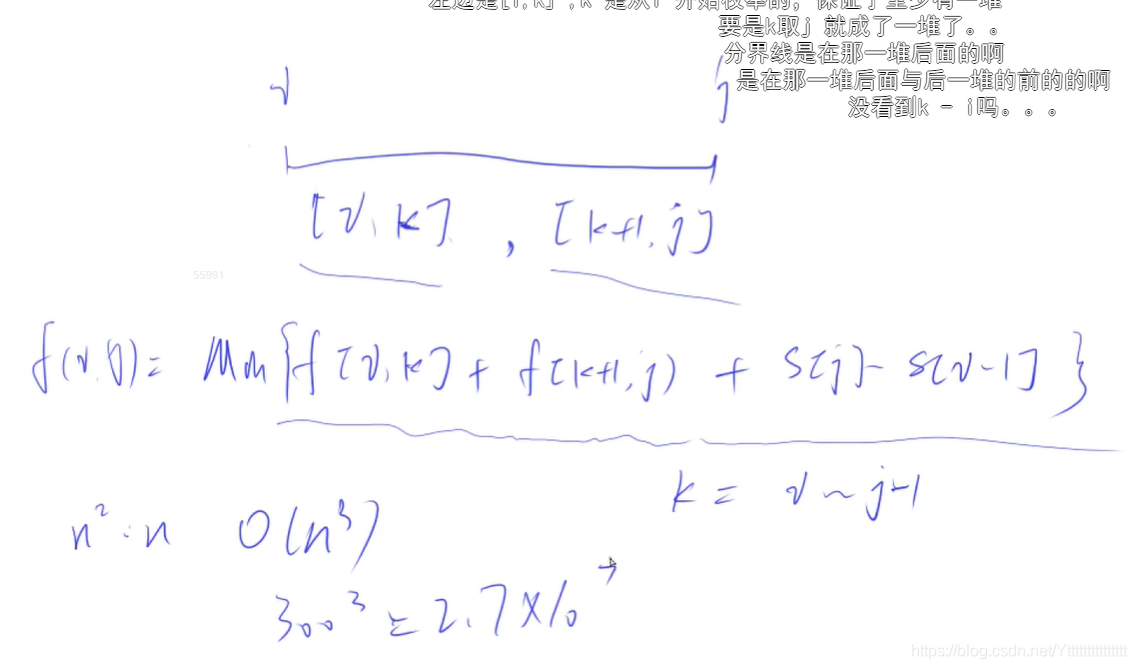 左边是[i,k] ,k 是从i 开始枚举的，保证了至少有一堆
要是k取j 就成了一堆了。。
分界线是在那一堆后面的啊
是在那一堆后面与后一堆的前的的啊
没看到k - i吗。。。
i j
[i, k] , [k+1, j]
55991
f(i, j) = Min{f[i, k] + f[k+1, j) + S[j] - S[i-1] }
k = i ~ j-1
n² · n O(n³)
300³ = 2.7 × 10⁷
https://blog.csdn.net/Yttttttttttttttt